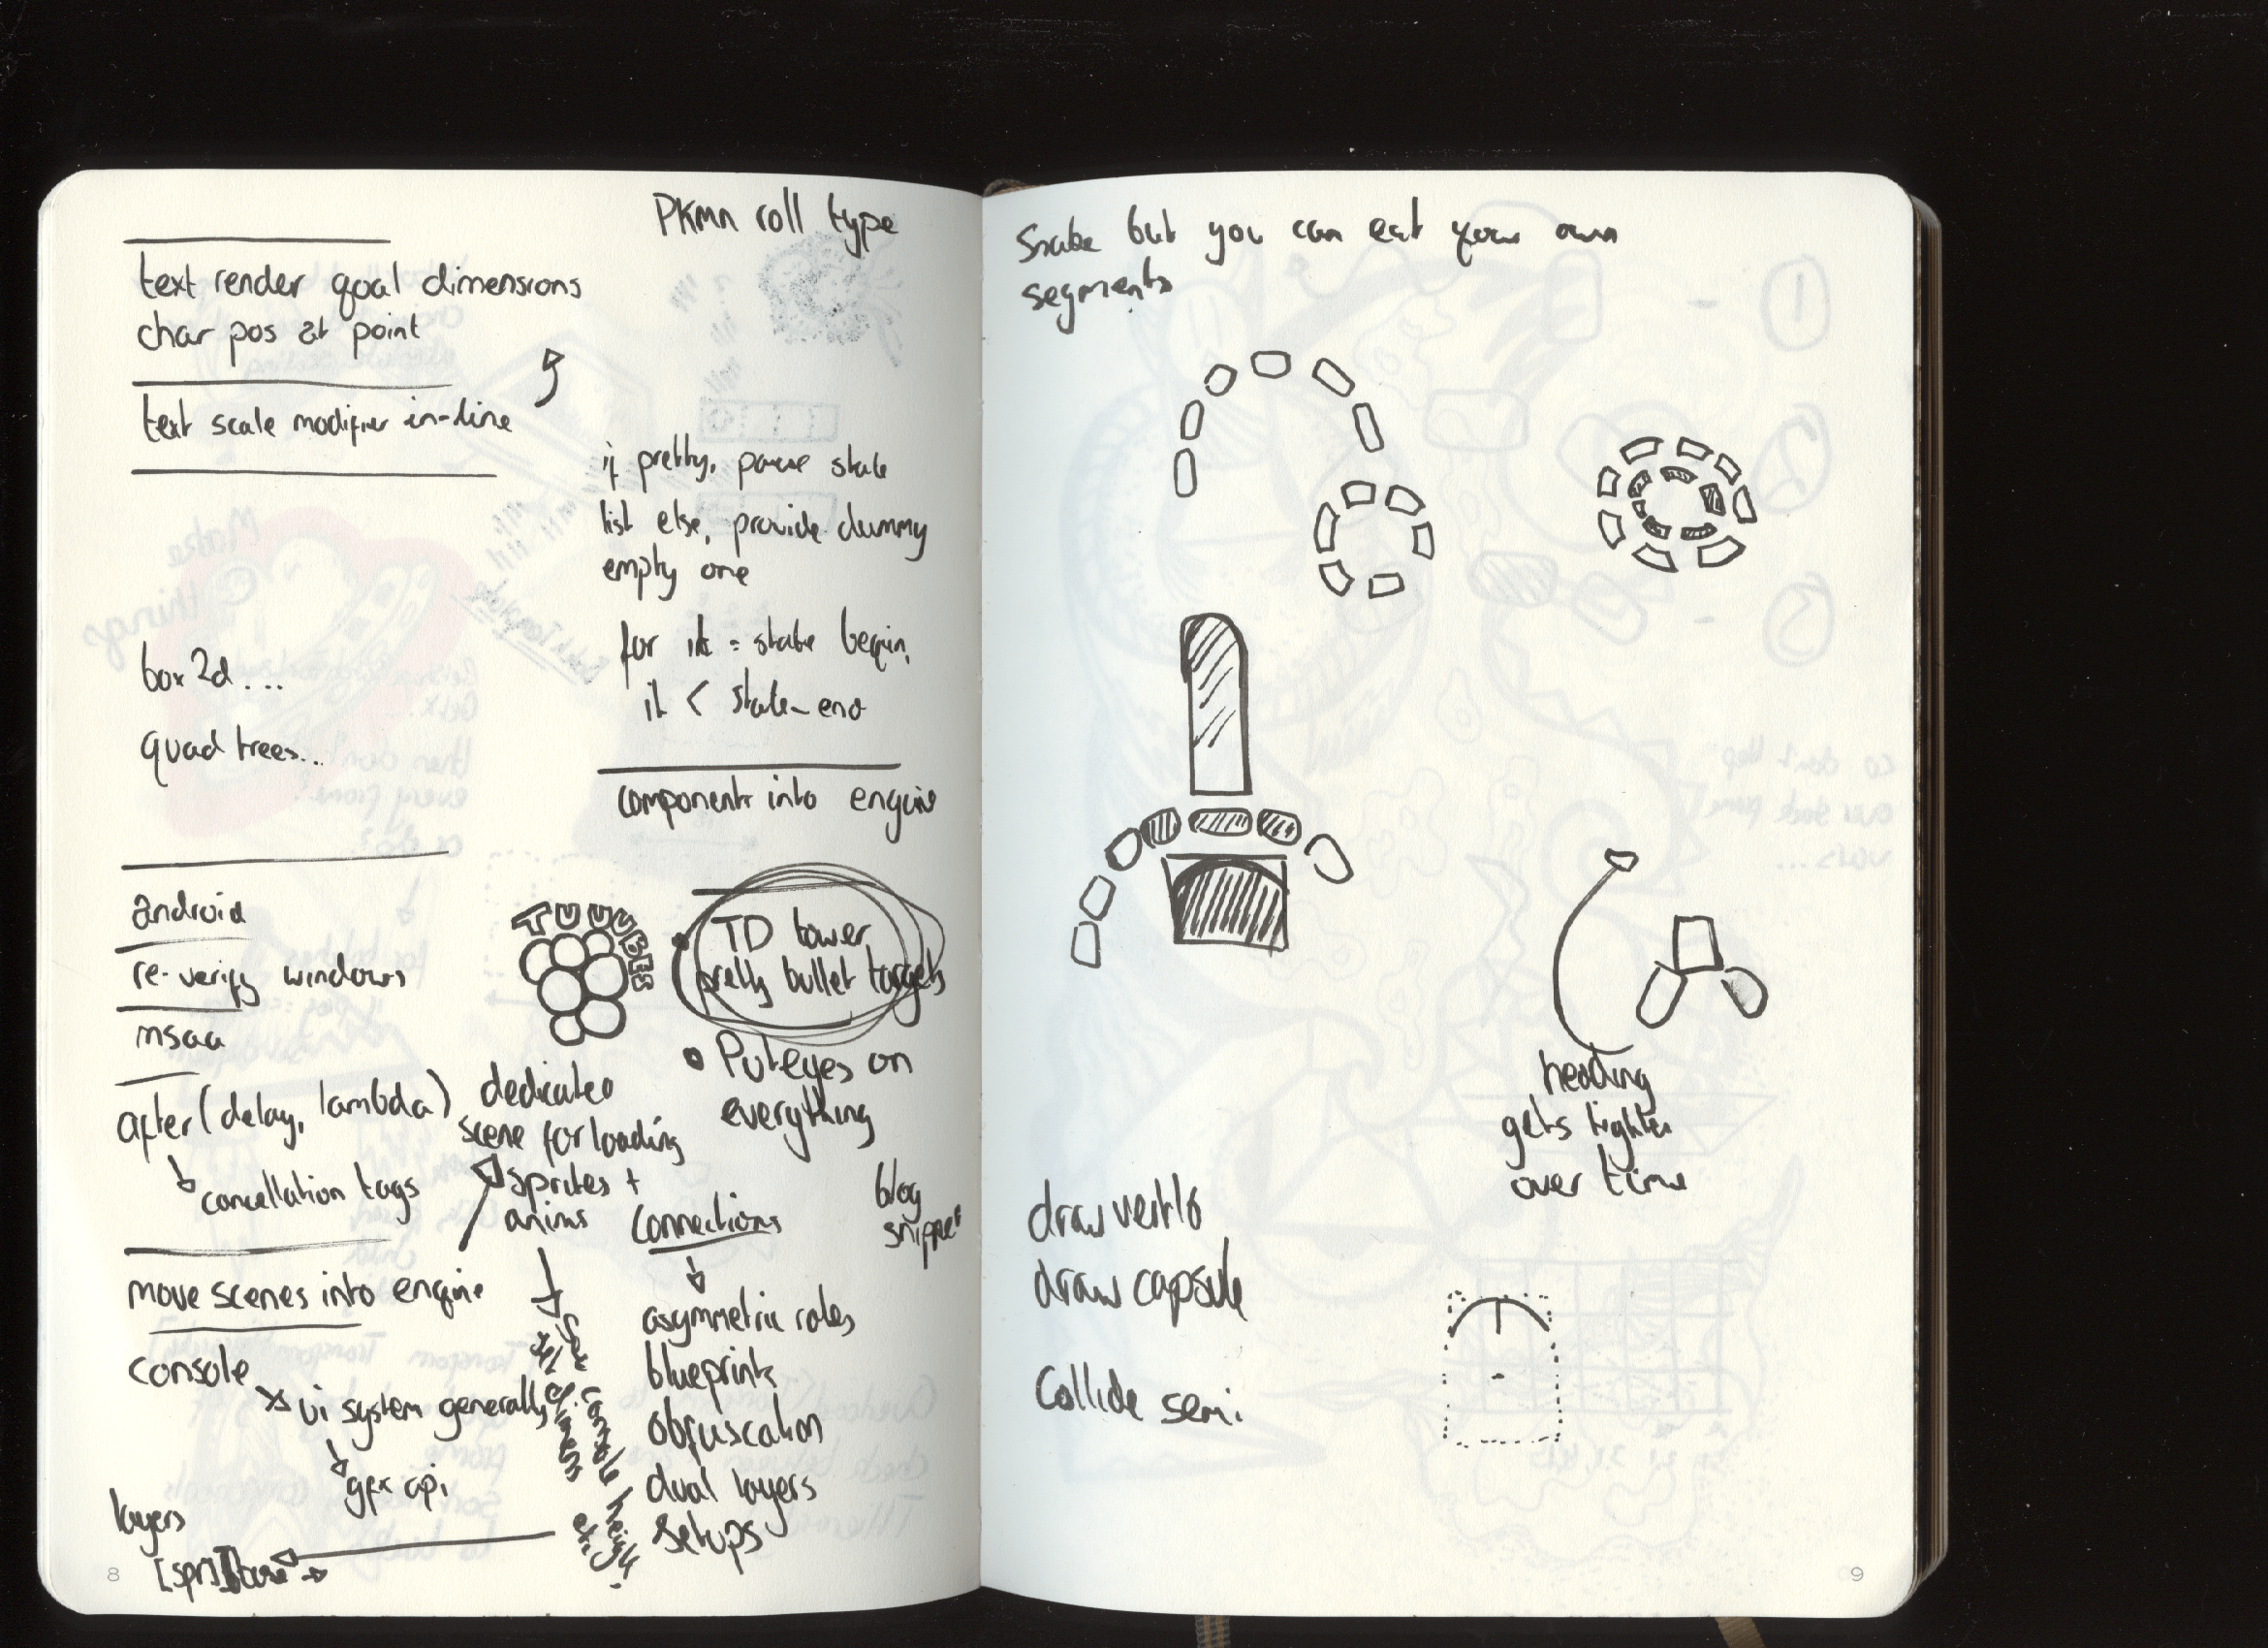 PKMN roll type
text render goal dimensions
char pos at point
text scale modifier in-line
if pretty, parse state
list else, provide dummy
empty one
for it = state begin,
it < state_end
box 2d...
quad trees...
components into engine
android
re-verify windows
msaa
after(delay, lambda)
cancellation tags
TUUUBES
TD tower
pretty bullet targets
Put eyes on
everything
dedicated
scene for loading
sprites +
anims
move scenes into engine
console
ui system generally
gfx api
layers
[spr]
connections
asymmetric roles
blueprints
obfuscation
dual layers
setups
blog
snippet
console height
etc.
8
Snake but you can eat your own
segments
heading
gets tighter
over time
draw
draw capsule
Collide semi
9